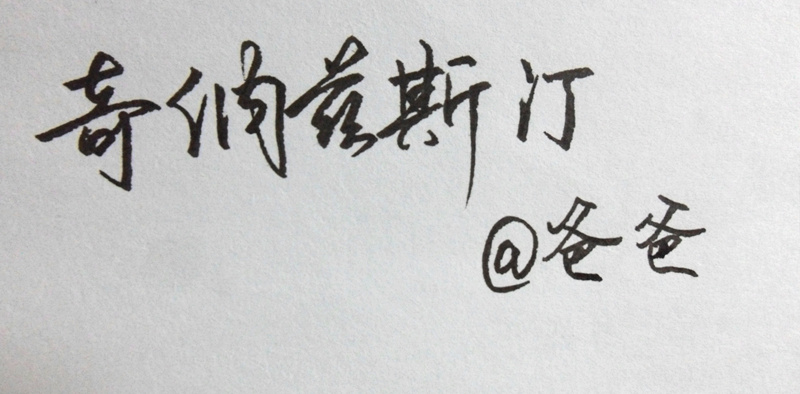 奇俩兹斯汀
@爸爸